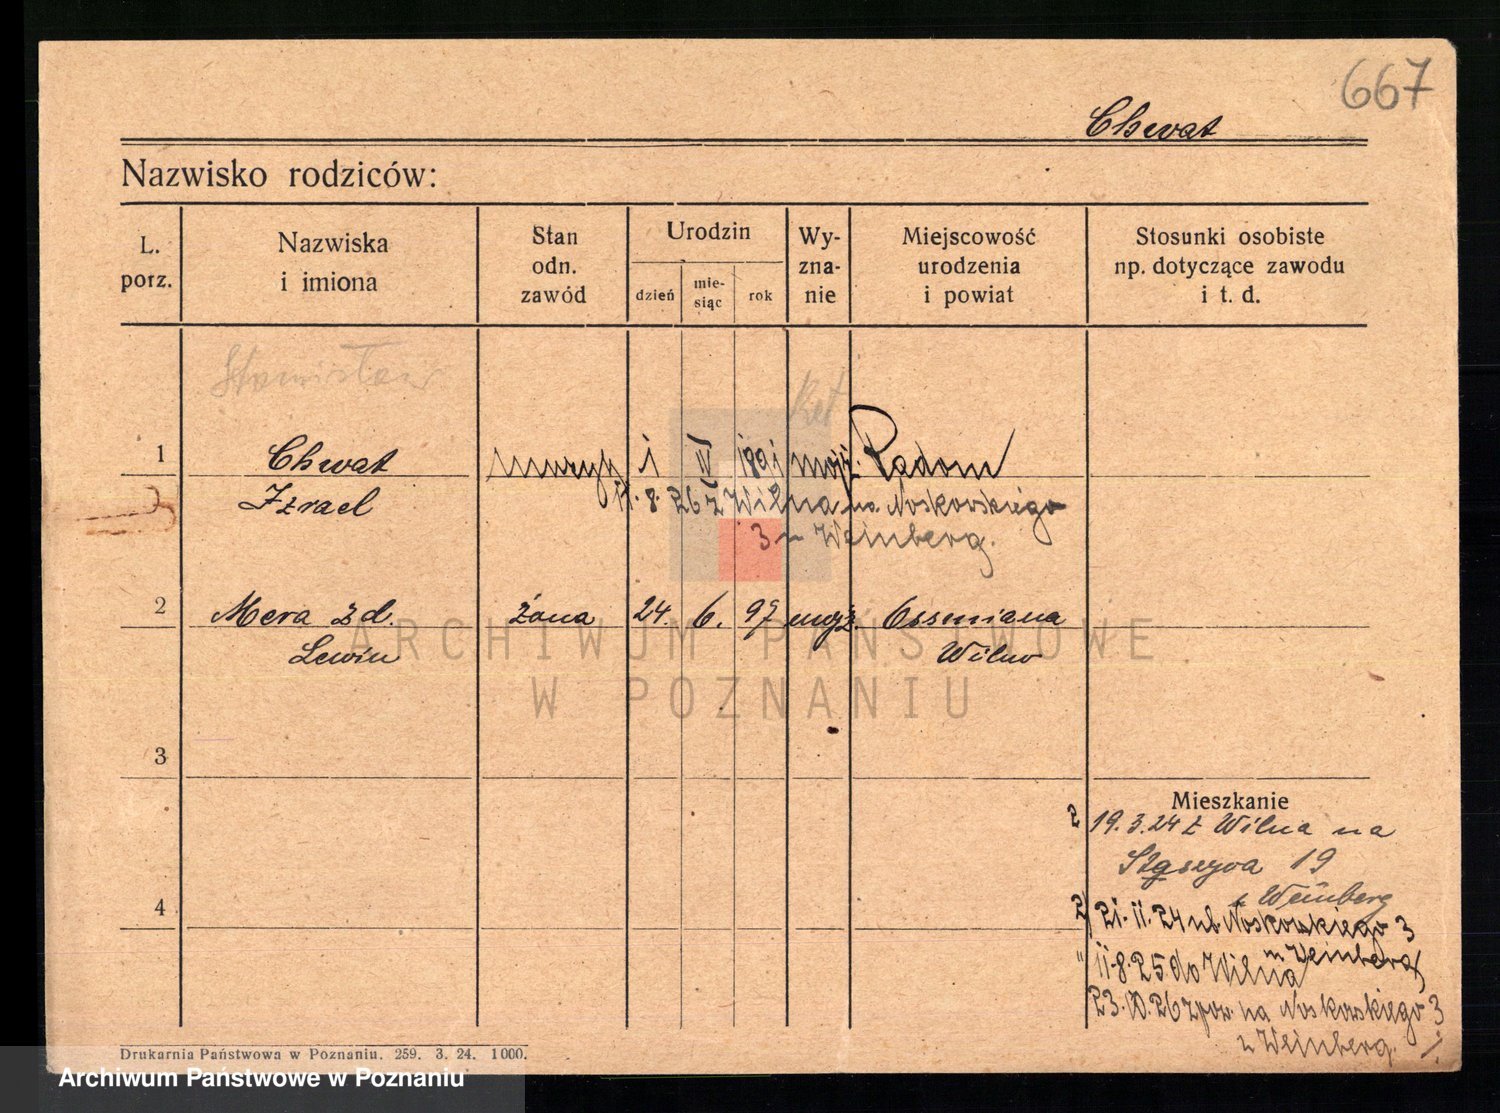 667
Chwat
Nazwisko rodziców:
L. porz.
Nazwiska i imiona
Stan odn. zawód
Urodzin
dzień
mie- siąc
rok
Wy- zna- nie
Miejscowość urodzenia i powiat
Stosunki osobiste np. dotyczące zawodu i t. d.
Stanisław
1 Chwat 1 IV 1891 mojż. Radom
Izrael
11. 8. 26 z Wilna na Noskowskiego
3 u Weinberg.
2 Mera zd. żona 24. 6. 97 mojż. Ossmiana
Lewin Wilno
3
Mieszkanie
2 19. 3. 24 z Wilna na
19
u Weinberg
4
2) 21. 11. 24 ul. Noskowskiego 3
u Weinberg
" 11. 8. 25 do Wilna
23. 10. 26 z pow. na Noskowskiego 3
u Weinberg.
Drukarnia Państwowa w Poznaniu. 259. 3. 24. 1000.
ARCHIWUM PAŃSTWOWE
W POZNANIU
Archiwum Państwowe w Poznaniu